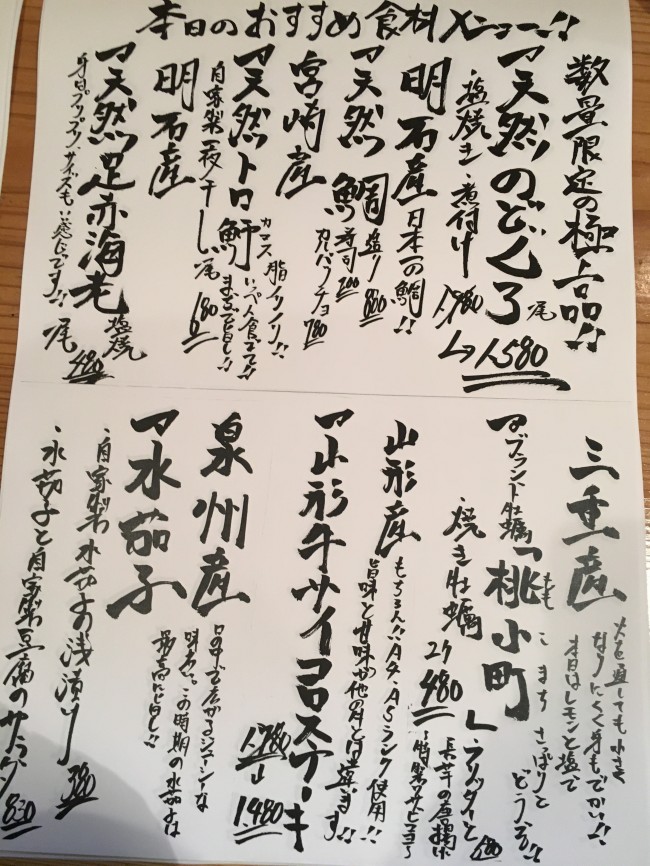 本日のおすすめ食料メニュー!!
数量限定の極上品!!
天然のどくろ
尾
・塩焼き・煮付け
1,780
↳1,580
明石産
日本一の鯛!!
天然鯛
塩り 800
寿司 200
カルパッチョ 780
宮崎産
天然トロ鰤
カマス
脂ノリノリ!!
いっぺん食て!!
まぢで旨し!!
自家製一夜干し
尾
180
明石産
天然足赤海老
塩焼
身はプリップリ、サイズもいい感じです!!
尾
480
三重産
火を通しても小さく
なりにくく身もでかい!!
本日はレモンと塩で
さっぱりと
どうぞ!!
ブランド牡蠣
「桃小町」
もも
こまち
・焼き牡蠣
2ケ
480
・フリッターと
長芋の唐揚げ
山形産
もちろん!!A4・A5ランク使用!!
旨味と甘味が他の肉とは違います!!
山形牛サイコロステーキ
1,780
↓
1,480
泉州産
口の中で広がるジューシーな
味わい。この時期の水茄子は
最高に旨し!!
水茄子
・自家製水茄子の浅漬け
380
・水茄子と自家製豆腐のサラダ
830